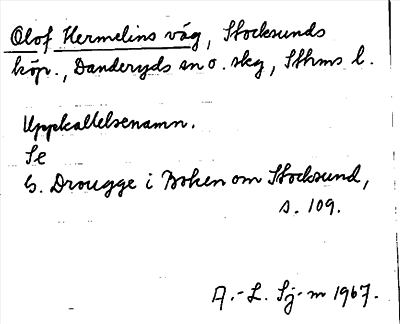 Olof Hermelins väg, Stocksunds
köp., Danderyds sn o. skg, Sthms l.
Uppkallelsenamn.
Se
G. Drougge i Boken om Stocksund,
s. 109.
A.-L. Sj-m 1967.